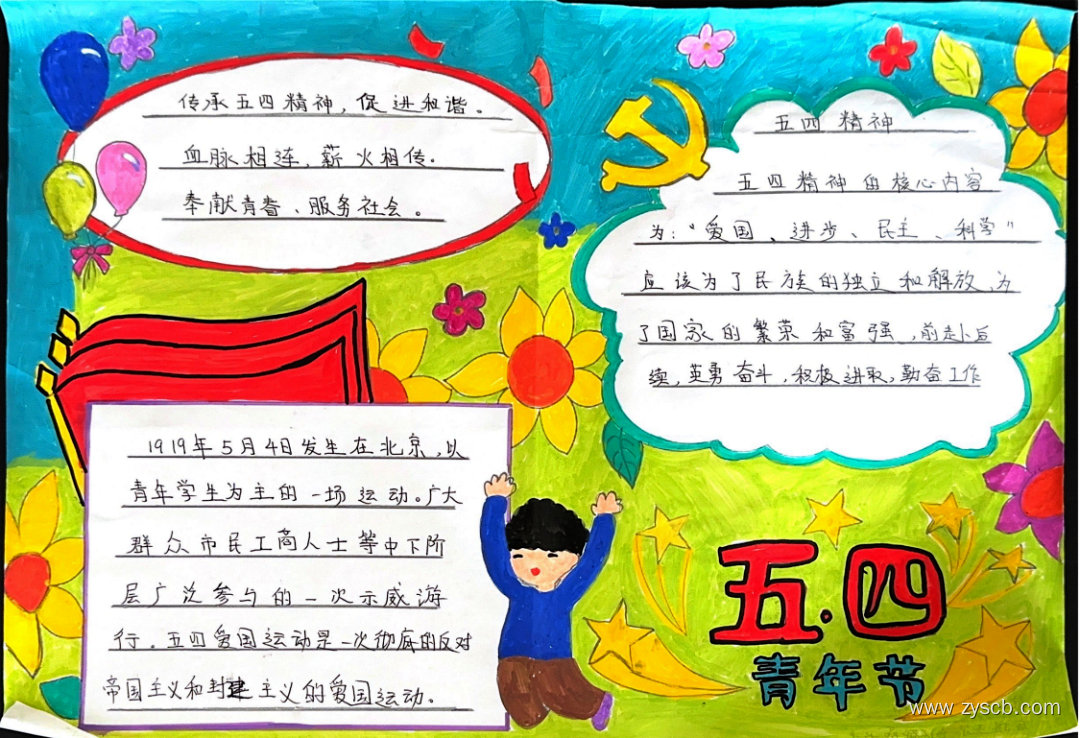 传承五四精神，促进和谐。
血脉相连，薪火相传.
奉献青春、服务社会。
五四精神
五四精神的核心内容
为：“爱国、进步、民主、科学”
应该为了民族的独立和解放，为
了国家的繁荣和富强，前赴后
续，英勇奋斗，积极进取，勤奋工作
1919年5月4日发生在北京，以
青年学生为主的一场运动。广大
群众市民工商人士等中下阶
层广泛参与的一次示威游
行。五四爱国运动是一次彻底的反对
帝国主义和封建主义的爱国运动。
五·四
青年节
www.zyscb.com